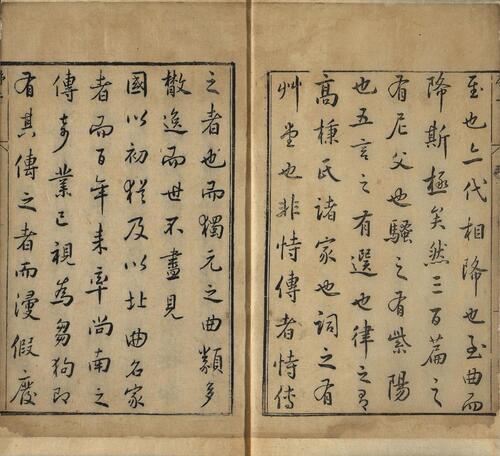 至也代相降也至曲而
降斯極矣然三百篇之
有尼父也騷之有紫陽
也五言之有選也律之有
高棅氏諸家也詞之有
艸堂也非恃傳者恃傳
之者也而獨元之曲類多
散逸而世不盡見
國以初猶及以北曲名家
者而百年来率尚南之
傳奇業已視為芻狗即
有其傳之者而漫假廢